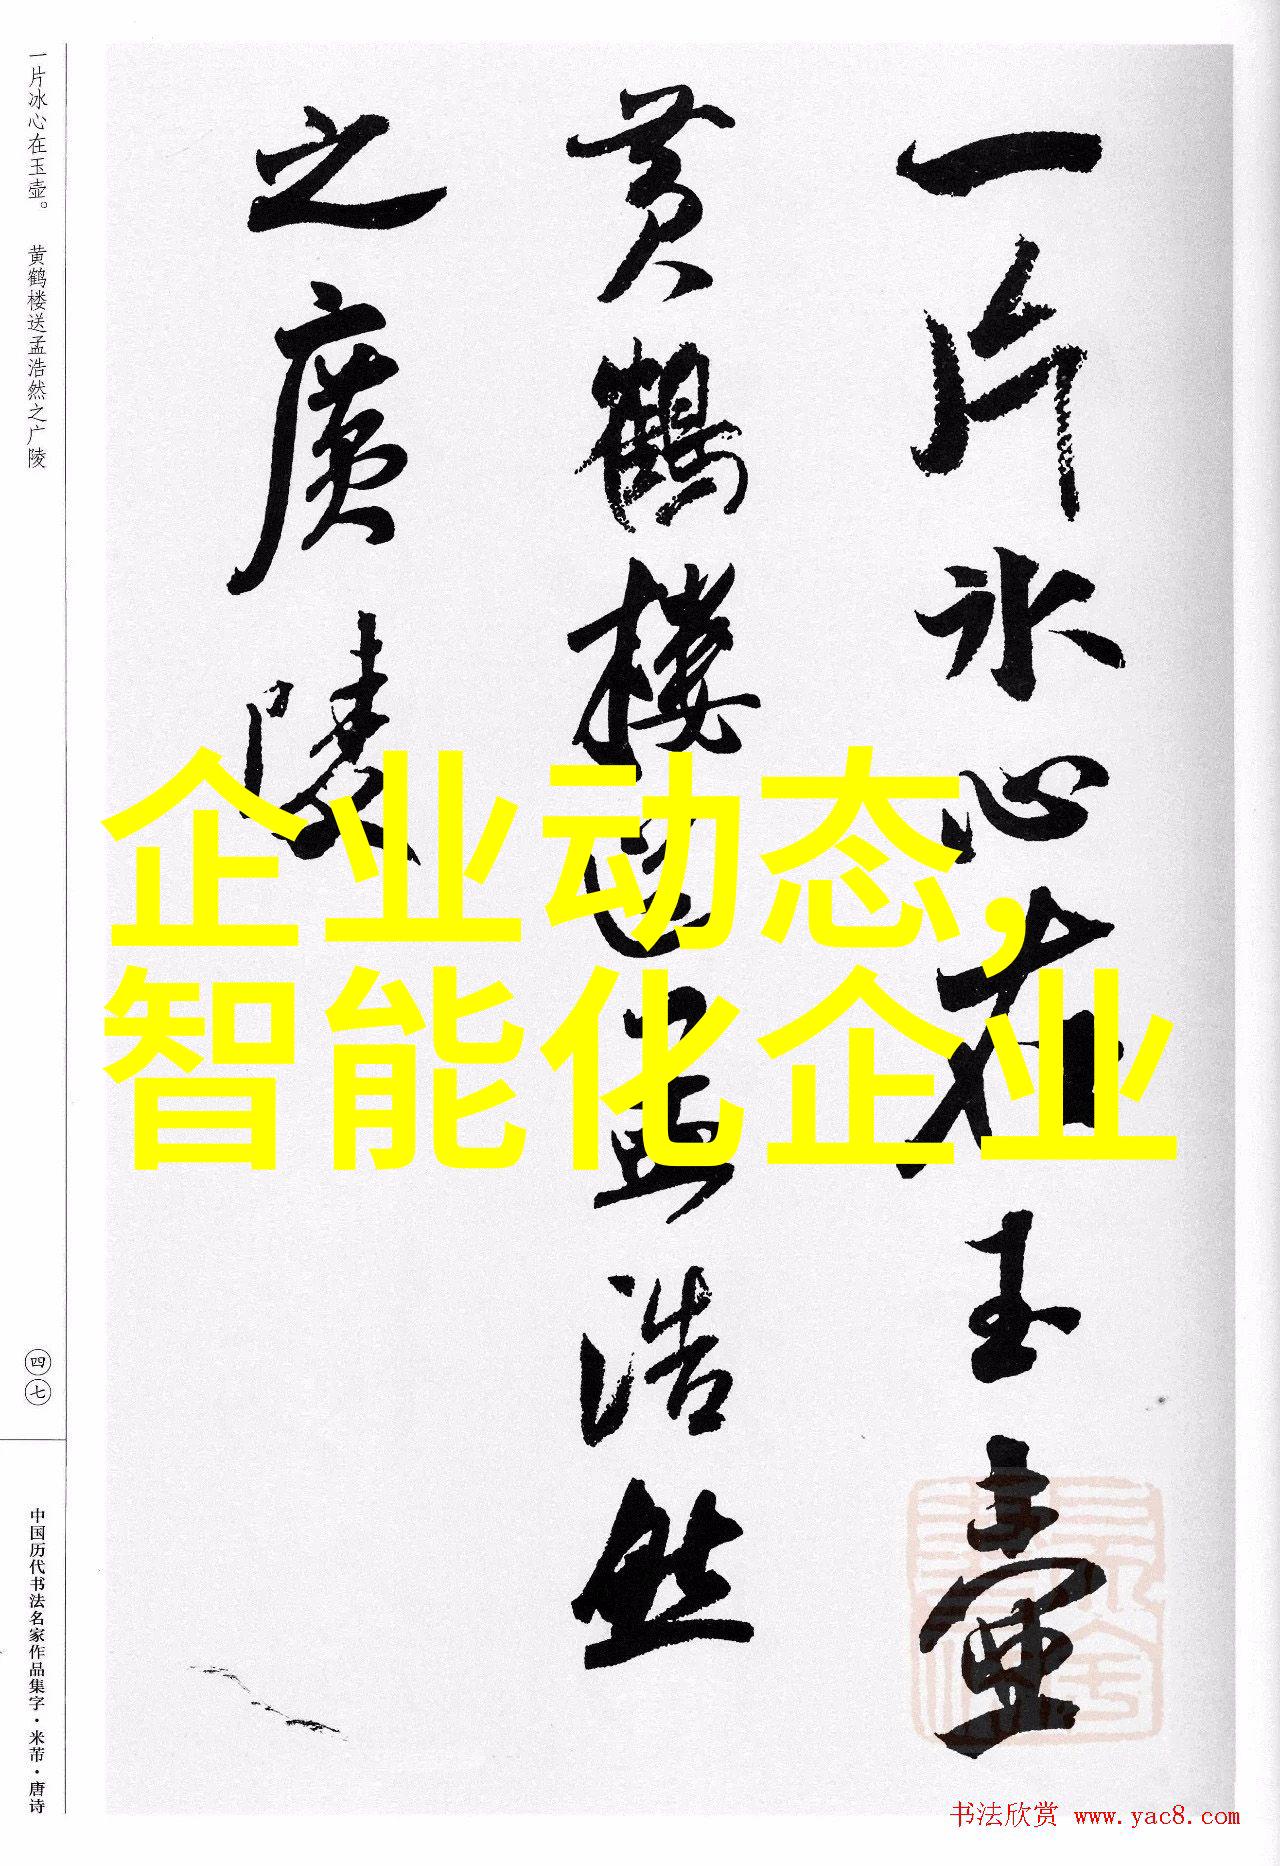 一片冰心在玉壶
黄鹤楼送孟浩然
之廣陵
企业动态,
智能化企业
一片冰心在玉壶。 黄鹤楼送孟浩然之广陵
四七
中国历代书法名家作品集字·米芾·唐诗
书法欣赏 www.yac8.com